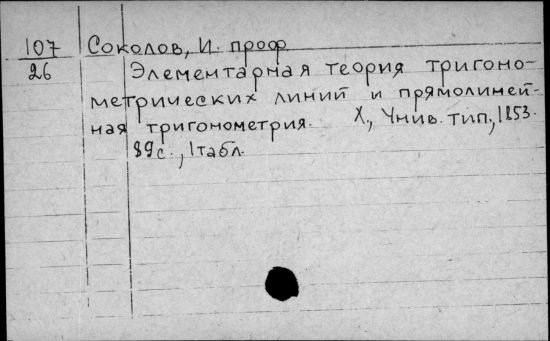 107 Соколов, И. проф.
26 Элементарная теория тригоно-
метрических линий и прямолиней-
ная тригонометрия. Х., Унив. тип., 1853.
89с., 1табл.